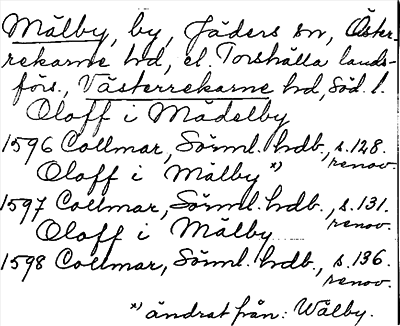 Mälby, by, Jäders sn, Öster-
rekarne hd, el. Torshälla lands-
förs., Västerrekarne hd, Söd. l.
Oloff i Mädelby
1596 Collmar, Sörml. hdb., s. 128.
renov.
Oloff i Mälby x)
1597 Collmar, Sörml. hdb., s. 131.
renov.
Oloff i Mälby
1598 Collmar, Sörml. hdb., s. 136.
renov.
x) ändrat från: Wälby.